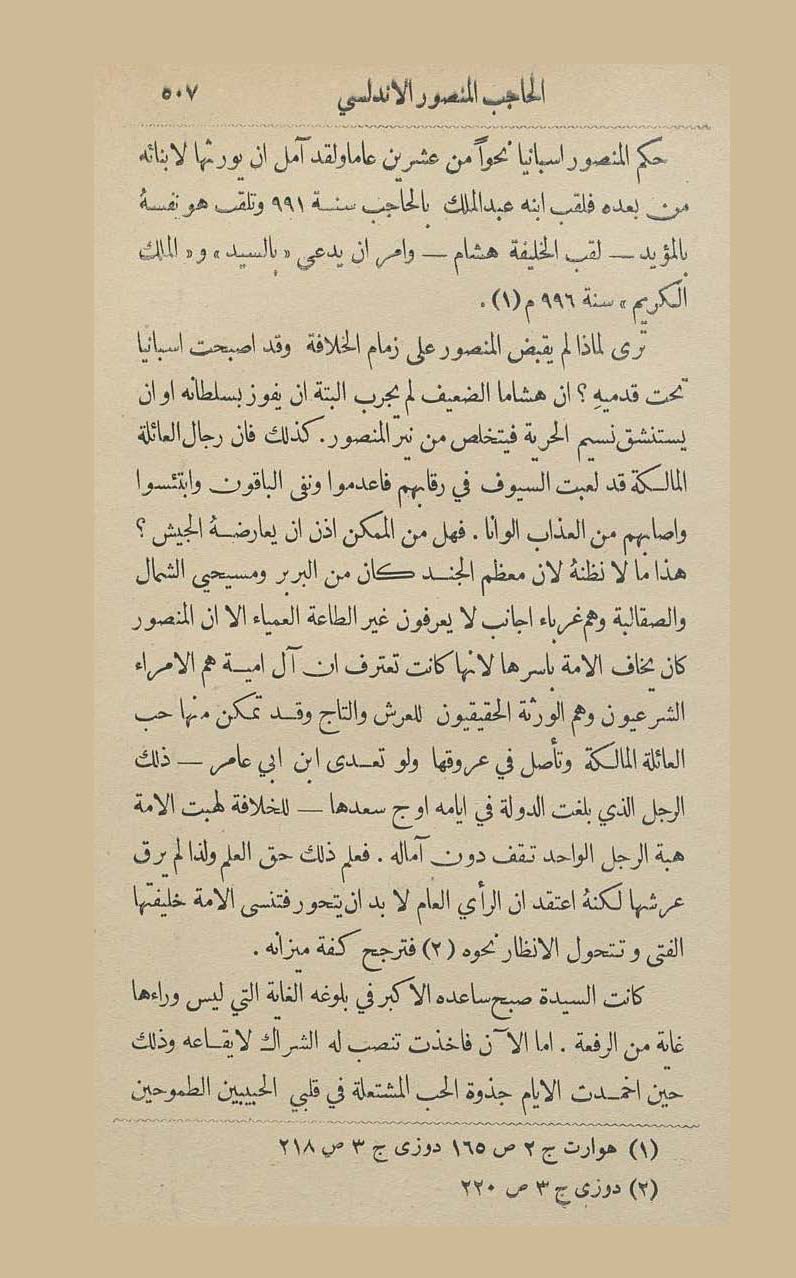 الحاجب المنصور الاندلسي ٥٠٧
حكم المنصور اسبانيا نحواً من عشرين عاما ولقد آمل ان يورثها لابنائه
من بعده فلقب ابنه عبدالملك بالحاجب سنة ٩٩١ وتلقب هو نفسهُ
بالمؤيد — لقب الخليفة هشام — وامر ان يدعى «بالسيد» و «الملك
الكريم» سنة ٩٩٦ م (١) .
تُرى لماذا لم يقبض المنصور على زمام الخلافة وقد اصبحت اسبانيا
تحت قدميهِ ؟ ان هشاما الضعيف لم يجرب البتة ان يفوز بسلطانه او ان
يستنشق نسيم الحرية فيتخلص من نير المنصور . كذلك فان رجال العائلة
المالكة قد لعبت السيوف في رقابهم فاعدموا ونفى الباقون وابتئسوا
واصابهم من العذاب الوانا . فهل من الممكن اذن ان يعارضهُ الجيش ؟
هذا ما لا نظنهُ لان معظم الجند كان من البربر ومسيحيي الشمال
والصقالبة وهم غرباء اجانب لا يعرفون غير الطاعة العمياء الا ان المنصور
كان يخاف الامة باسرها لانها كانت تعترف ان آل امية هم الامراء
الشرعيون وهم الورثة الحقيقيون للعرش والتاج وقد تمكن منها حب
العائلة المالكة وتأصل في عروقها ولو تعدى ابن ابي عامر — ذلك
الرجل الذي بلغت الدولة في ايامه اوج سعدها — للخلافة لهبت الامة
هبة الرجل الواحد تقف دون آماله . فعلم ذلك حق العلم ولذا لم يرق
عرشها لكنهُ اعتقد ان الرأي العام لا بد ان يتحور فتنسى الامة خليفتها
الفتى وتتحول الانظار نحوه (٢) فترجح كفة ميزانه .
كانت السيدة صبح ساعده الاكبر في بلوغه الغاية التي ليس وراءها
غاية من الرفعة . اما الآن فاخذت تنصب له الشراك لايقاعه وذلك
حين اخمدت الايام جذوة الحب المشتعلة في قلبي الحبيبين الطموحين
(١) هوارت ج ٢ ص ١٦٥ دوزى ج ٣ ص ٢١٨
(٢) دوزى ج ٣ ص ٢٢٠